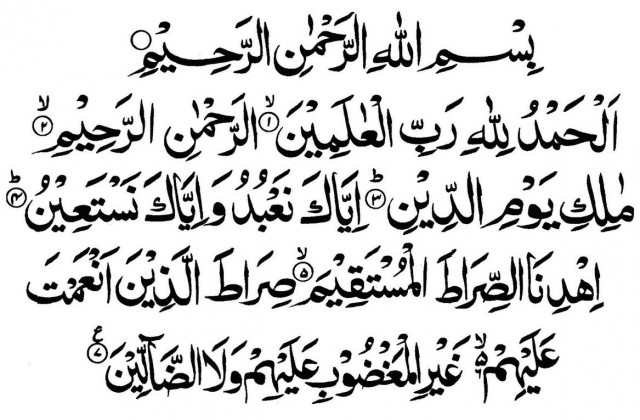 بِسْمِ اللهِ الرَّحْمٰنِ الرَّحِيْمِ ○
اَلْحَمْدُ لِلّٰهِ رَبِّ الْعٰلَمِيْنَ ۙ﴿۱﴾ الرَّحْمٰنِ الرَّحِيْمِ ۙ﴿۲﴾
مٰلِكِ يَوْمِ الدِّيْنِ ؕ﴿۳﴾ اِيَّاكَ نَعْبُدُ وَاِيَّاكَ نَسْتَعِيْنُ ؕ﴿۴﴾
اِهْدِنَا الصِّرَاطَ الْمُسْتَقِيْمَ ۙ﴿۵﴾ صِرَاطَ الَّذِيْنَ اَنْعَمْتَ
عَلَيْهِمْ ۙ۬﴿۶﴾ غَيْرِ الْمَغْضُوْبِ عَلَيْهِمْ وَلَا الضَّآلِّيْنَ ﴿۷﴾ ع